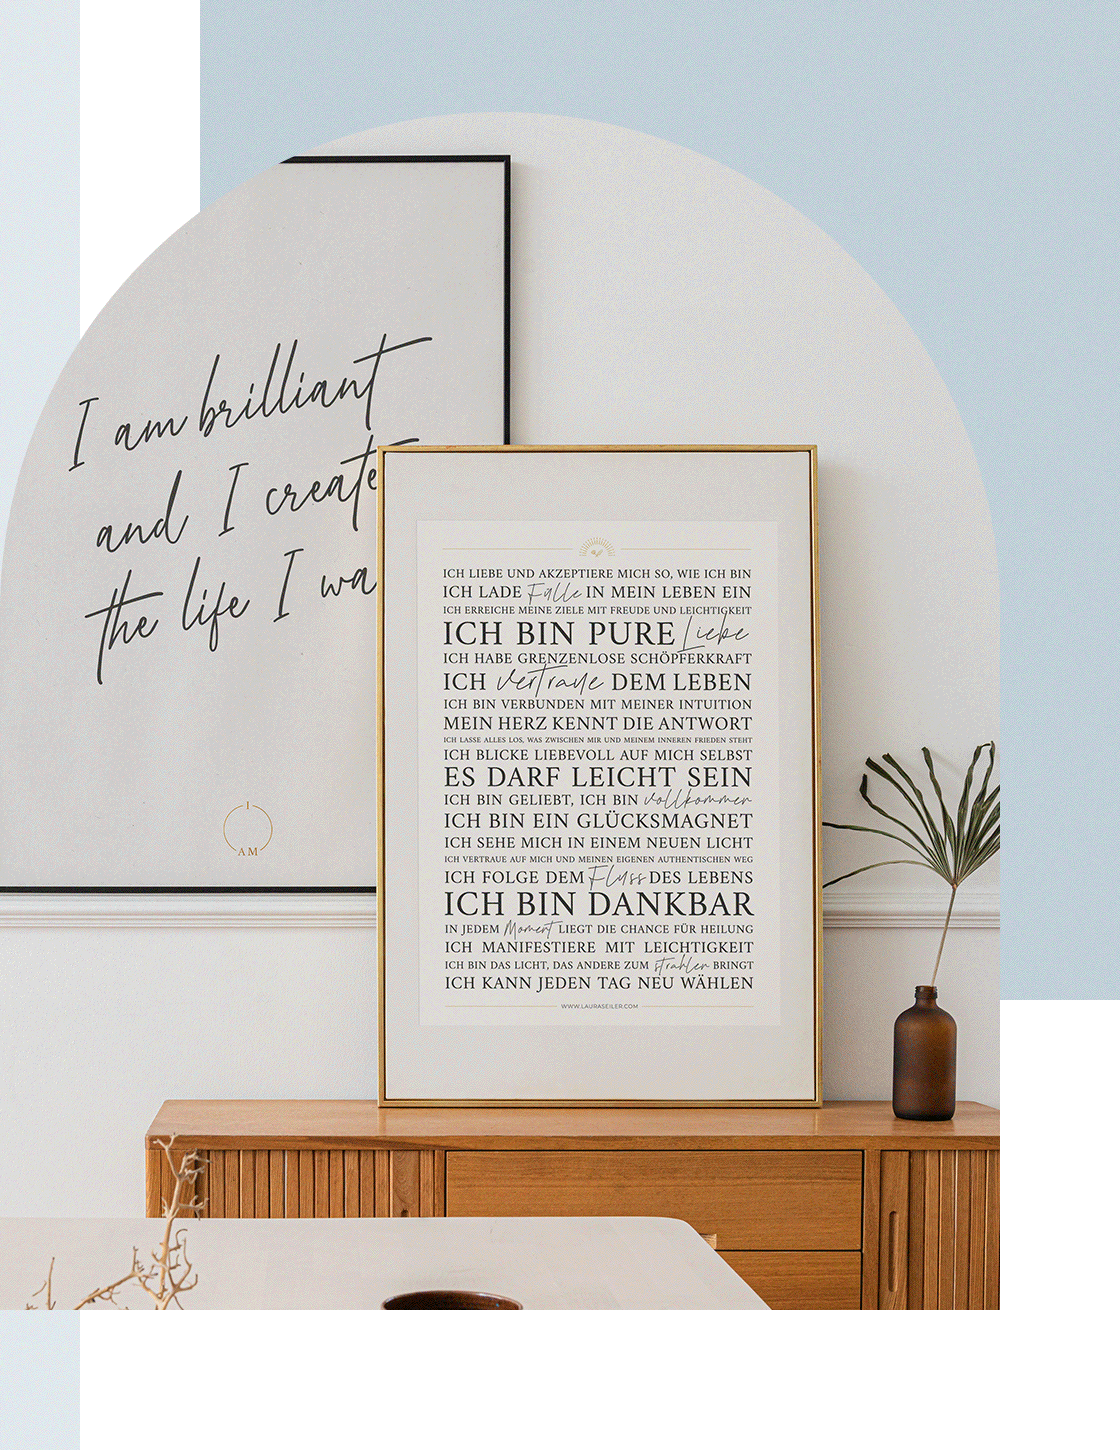 I am brilliant
and I create
the life I wa
I
AM
ICH LIEBE UND AKZEPTIERE MICH SO, WIE ICH BIN
ICH LADE Fülle IN MEIN LEBEN EIN
ICH ERREICHE MEINE ZIELE MIT FREUDE UND LEICHTIGKEIT
ICH BIN PURE Liebe
ICH HABE GRENZENLOSE SCHÖPFERKRAFT
ICH vertraue DEM LEBEN
ICH BIN VERBUNDEN MIT MEINER INTUITION
MEIN HERZ KENNT DIE ANTWORT
ICH LASSE ALLES LOS, WAS ZWISCHEN MIR UND MEINEM INNEREN FRIEDEN STEHT
ICH BLICKE LIEBEVOLL AUF MICH SELBST
ES DARF LEICHT SEIN
ICH BIN GELIEBT, ICH BIN vollkommen
ICH BIN EIN GLÜCKSMAGNET
ICH SEHE MICH IN EINEM NEUEN LICHT
ICH VERTRAUE AUF MICH UND MEINEN EIGENEN AUTHENTISCHEN WEG
ICH FOLGE DEM Fluss DES LEBENS
ICH BIN DANKBAR
IN JEDEM Moment LIEGT DIE CHANCE FÜR HEILUNG
ICH MANIFESTIERE MIT LEICHTIGKEIT
ICH BIN DAS LICHT, DAS ANDERE ZUM strahlen BRINGT
ICH KANN JEDEN TAG NEU WÄHLEN
WWW.LAURASEILER.COM